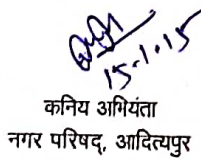 15.1.15
कनिय अभियंता
नगर परिषद्, आदित्यपुर